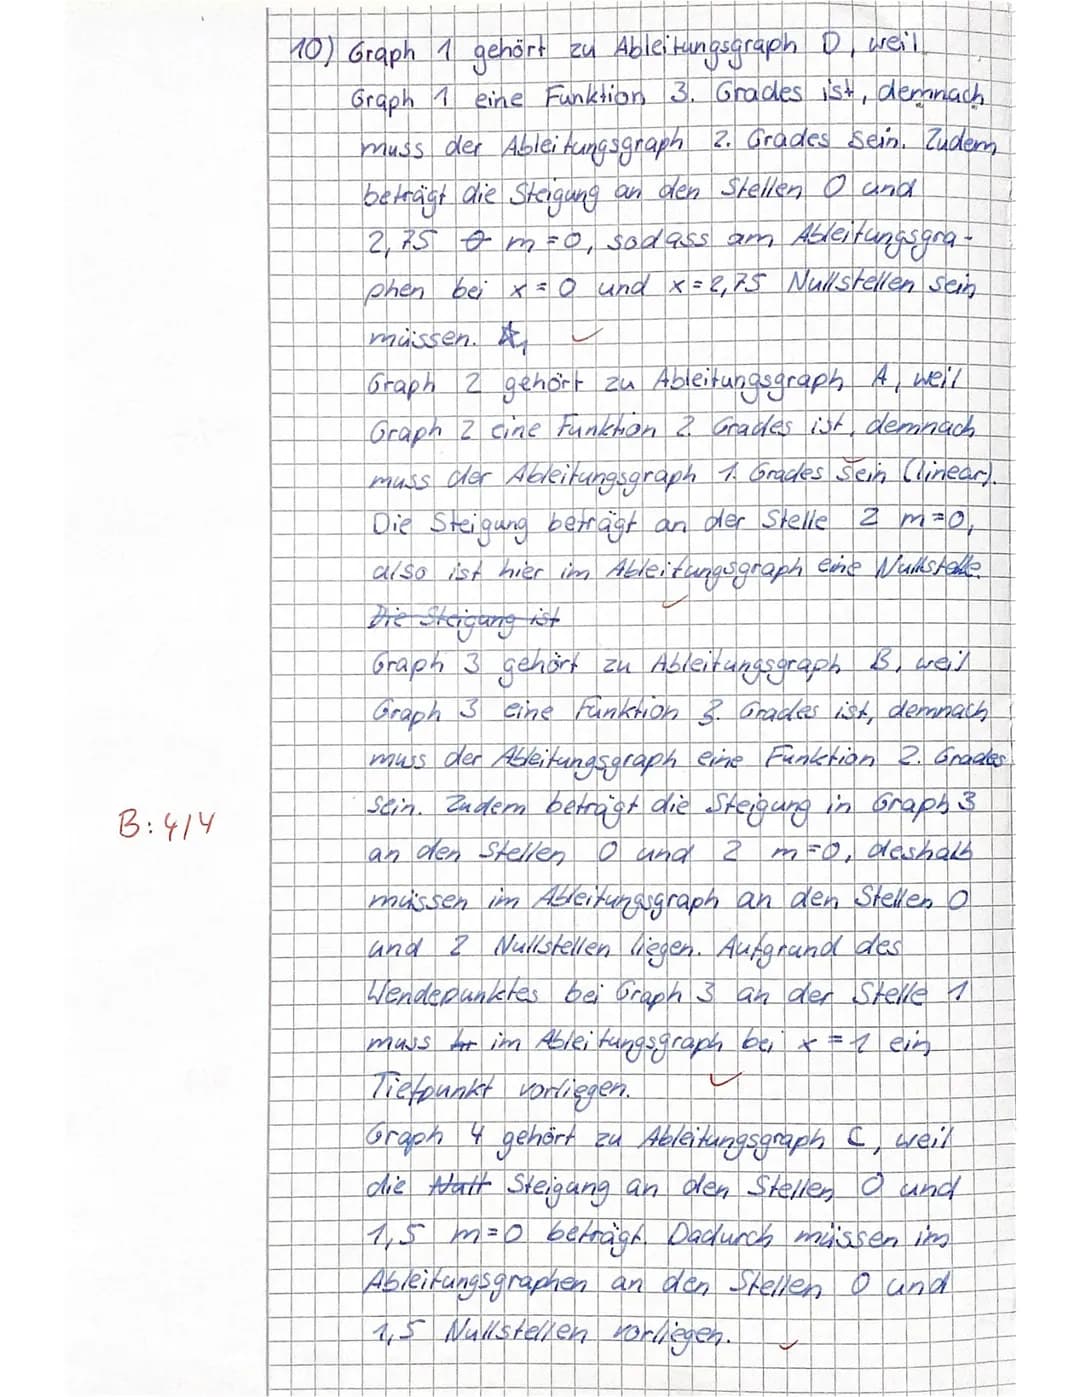 10) Graph 1 gehört zu Ableitungsgraph D, weil
Graph 1 eine Funktion 3. Grades ist, demnach
muss der Ableitungsgraph 2. Grades sein. Zudem
beträgt die Steigung an den Stellen 0 und
2,75 m=0, sodass am Ableitungsgra-
phen bei x=0 und x=2,75 Nullstellen sein
müssen. ☆1 ✓
Graph 2 gehört zu Ableitungsgraph A, weil
Graph 2 eine Funktion 2. Grades ist, demnach
muss der Ableitungsgraph 1. Grades sein (linear).
Die Steigung beträgt an der Stelle 2 m=0,
also ist hier im Ableitungsgraph eine Nullstelle.
Die Steigung ist ✓
Graph 3 gehört zu Ableitungsgraph B, weil
Graph 3 eine Funktion 3. Grades ist, demnach
muss der Ableitungsgraph eine Funktion 2. Grades
sein. Zudem beträgt die Steigung in Graph 3
B: 4/4
an den Stellen 0 und 2 m=0, deshalb
müssen im Ableitungsgraph an den Stellen 0
und 2 Nullstellen liegen. Aufgrund des
Wendepunktes bei Graph 3 an der Stelle 1
muss im Ableitungsgraph bei x=1 ein
Tiefpunkt vorliegen. ✓
Graph 4 gehört zu Ableitungsgraph C, weil
die Null Steigung an den Stellen 0 und
1,5 m=0 beträgt. Dadurch müssen im
Ableitungsgraphen an den Stellen 0 und
1,5 Nullstellen vorliegen. ✓